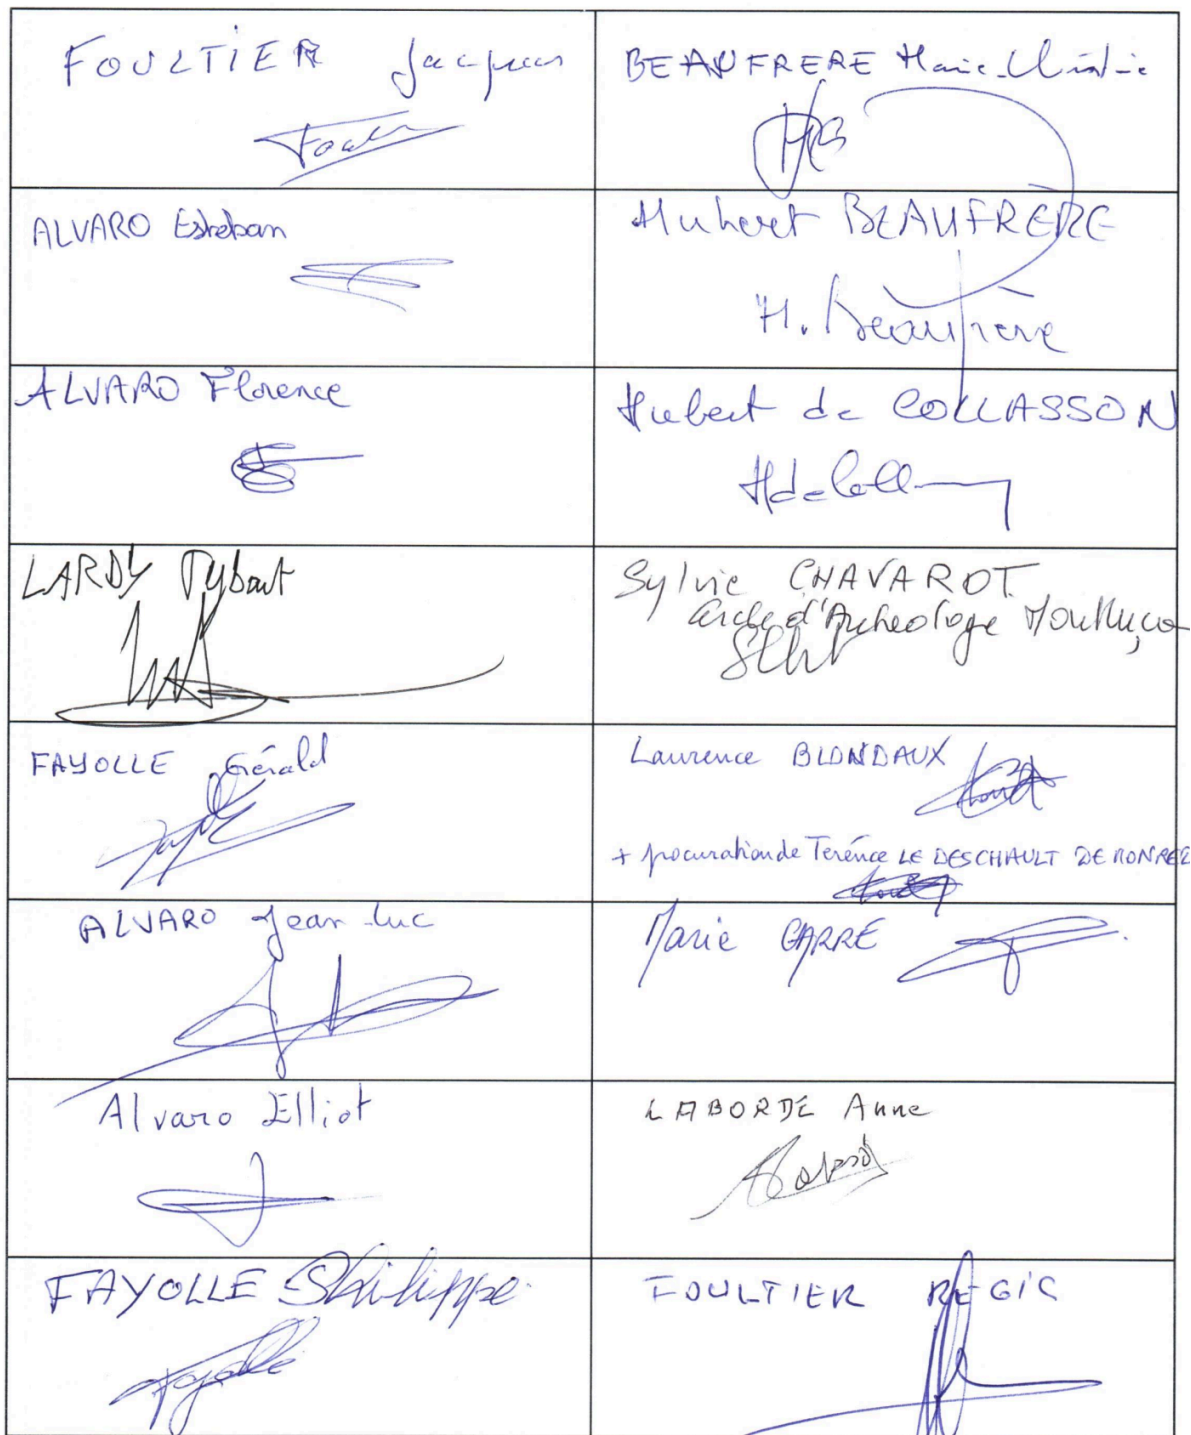 FOULTIER Jacques
BEAUFRERE Marie-Christine
ALVARO Esteban
Hubert BEAUFRERE
H. Beaufrère
ALVARO Florence
Hubert de COLLASSON
LARDY Tybaut
Sylvie CHAVAROT
Cercle d'Archeologie Montluçon
FAYOLLE Gérald
Laurence BLONDAUX
+ procuration de Terénce LE DESCHAULT DE MONREDON
ALVARO Jean-luc
Marie GARRE
Alvaro Elliot
LABORDE Anne
FAYOLLE Philippe
Fayolle
FOULTIER REGIS